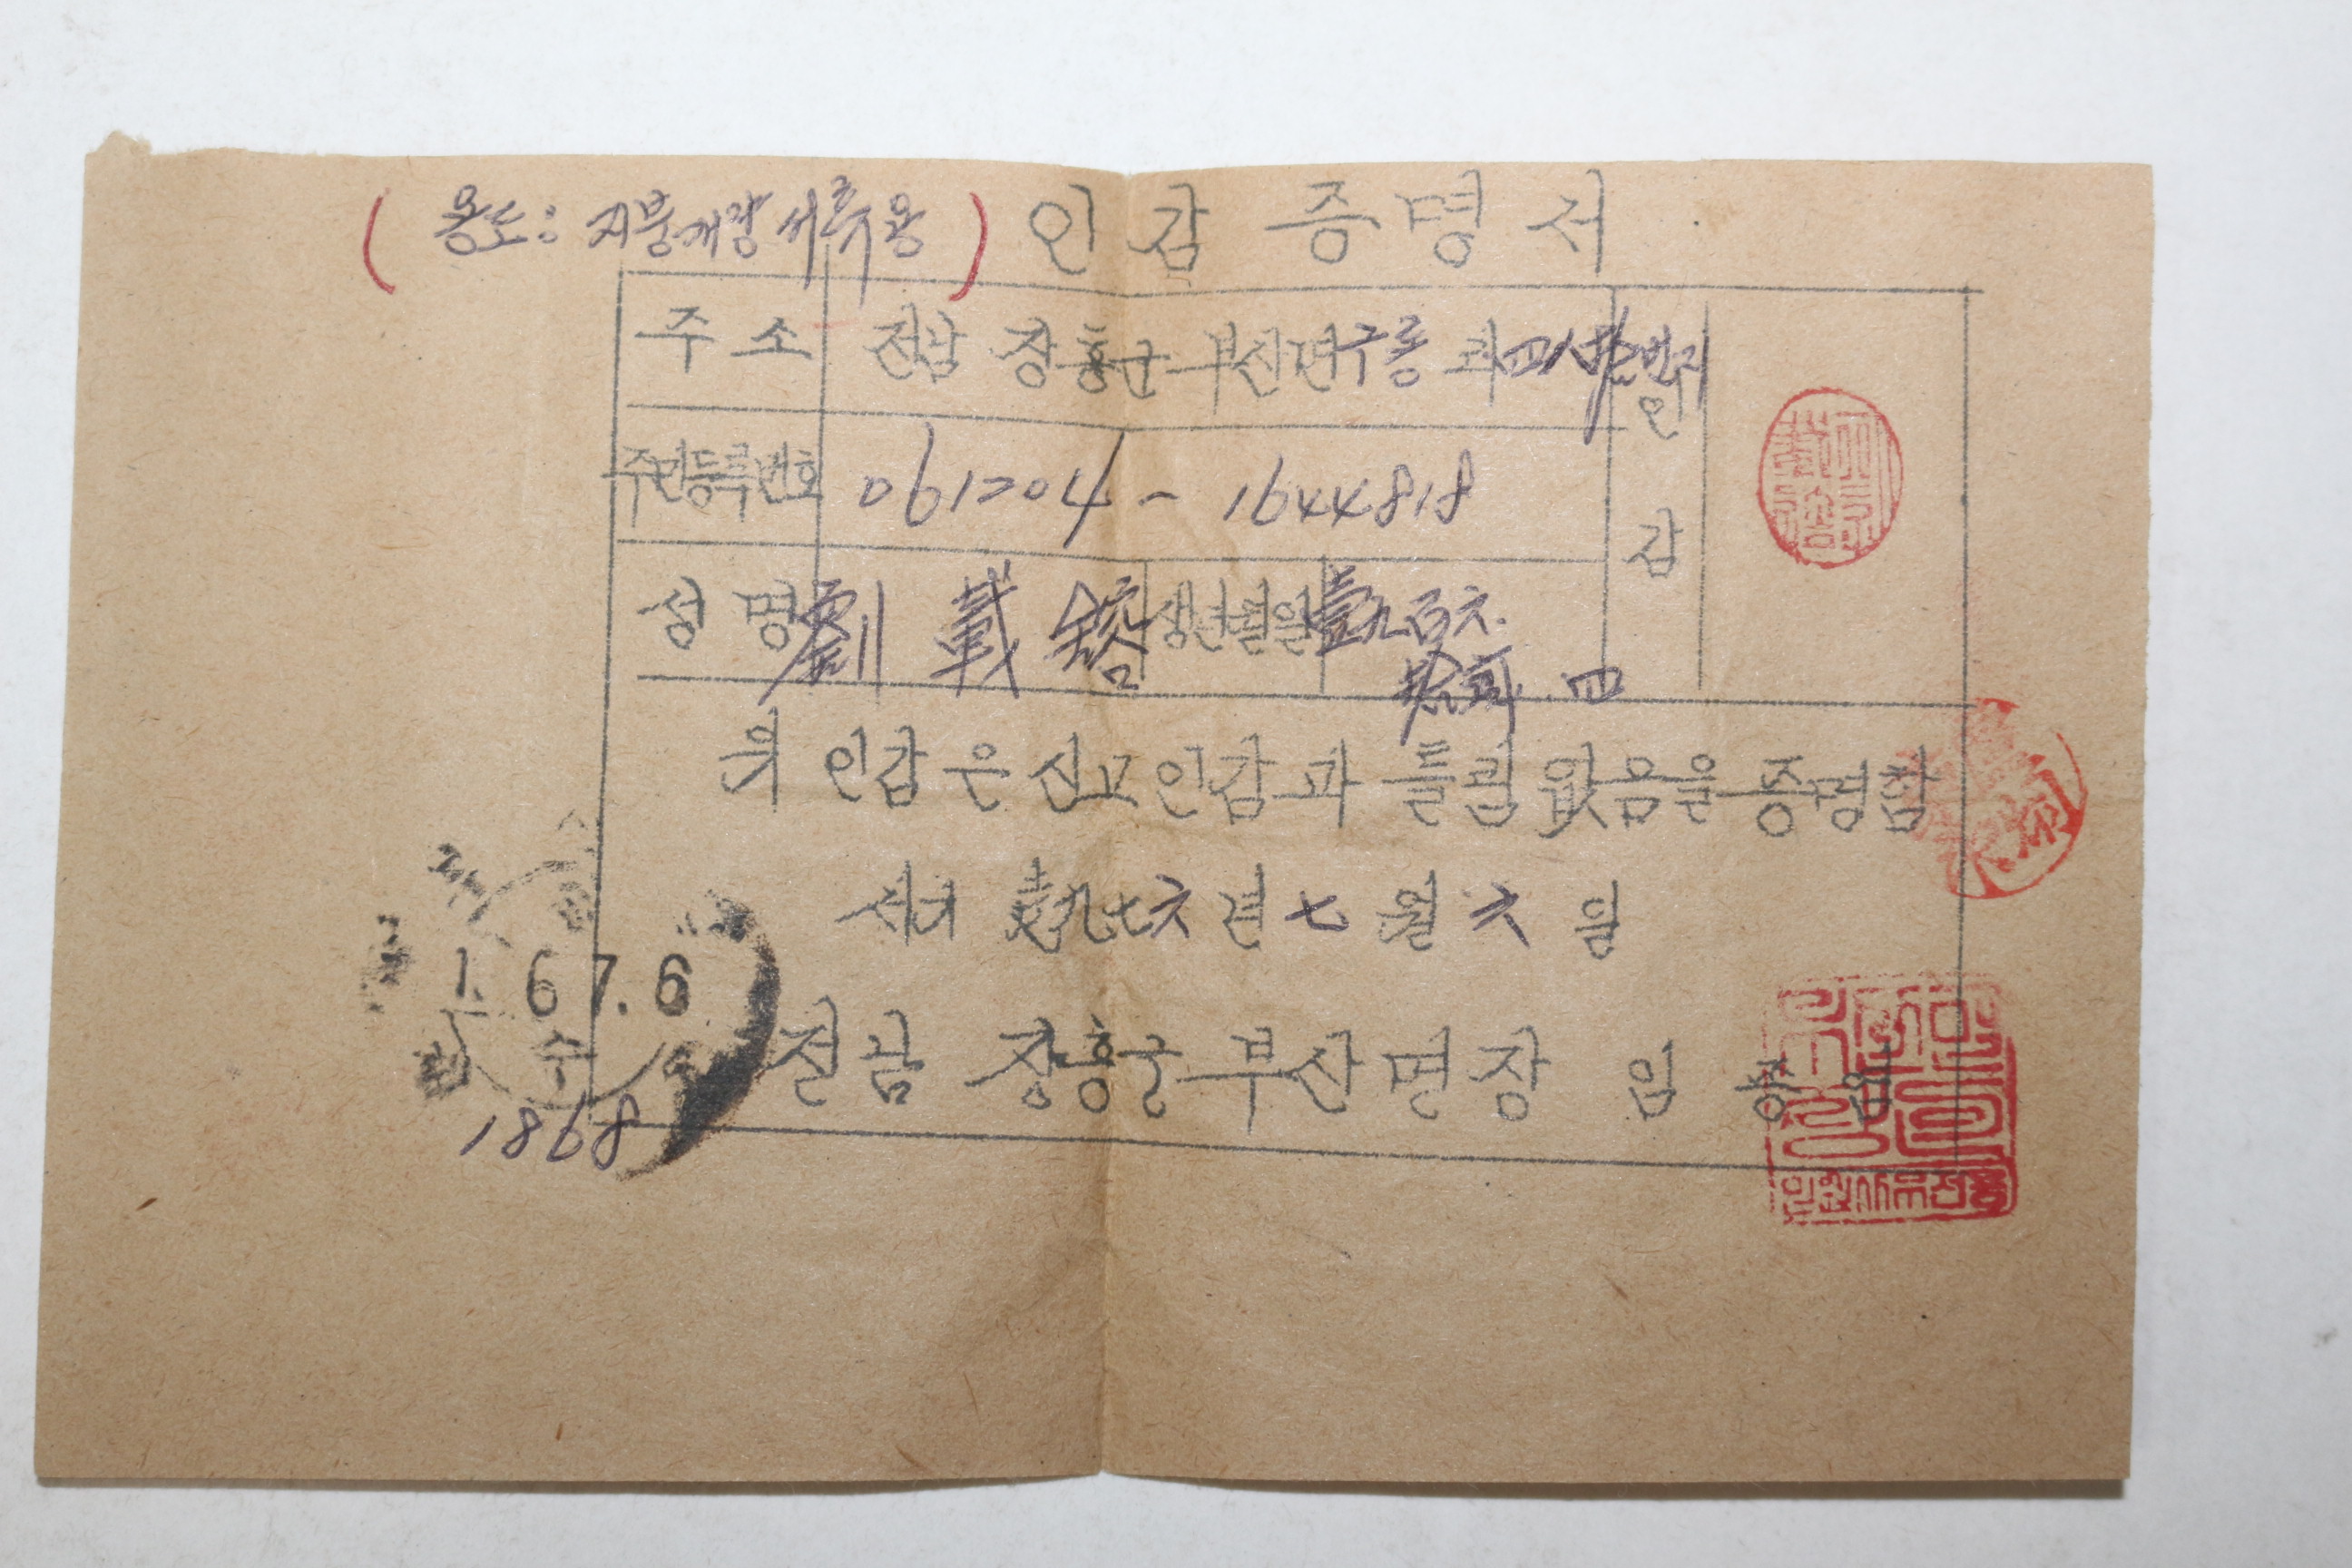 (용도: 지붕개량 서류용) 인감증명서
주소 전남 장흥군 부산면 구룡리 번지
인감
주민등록번호 061204-1644818
성명 劉載鎔 생년월일 壹九百六.
拾貳. 四
위 인감은 신고인감과 틀림 없음을 증명함
서기 壹九七六년 七월 六일
1. 6 7. 6
수
전남 장흥군 부산면장 임
1868